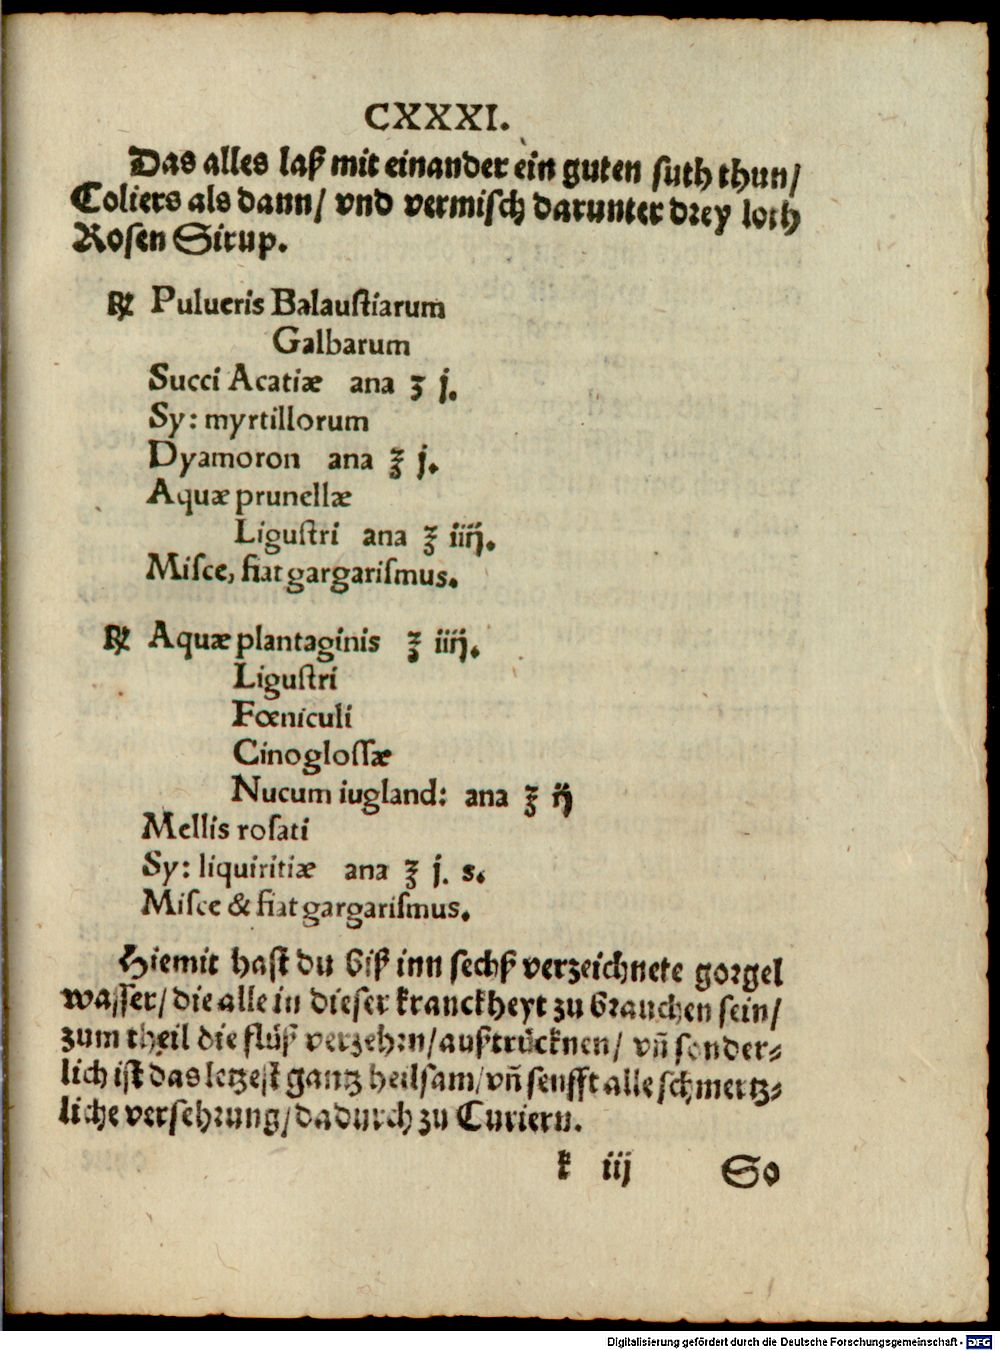 CXXXI.
Das alles laß mit einander ein guten suth thun/
Coliers als dann/ vnd vermisch darunter drey loth
Rosen Sirup.
℞ Pulueris Balaustiarum
Galbarum
Succi Acatiæ ana ʒ j.
Sy: myrtillorum
Dyamoron ana ℥ j.
Aquæ prunellæ
Ligustri ana ℥ iiij.
Misce, fiat gargarismus.
℞ Aquæ plantaginis ℥ iiij.
Ligustri
Fœniculi
Cinoglossæ
Nucum iugland: ana ℥ ij
Mellis rosati
Sy: liquiritiæ ana ℥ j. s.
Misce & fiat gargarismus.
Hiemit hast du biß inn sechß verzeichnete gorgel
wasser/ die alle in dieser kranckheyt zu brauchen sein/
zum theil die flüß verzehrn/ außtrücknen/ vñ sonder⸗
lich ist das letzest gantz heilsam/ vñ senfft alle schmertz⸗
liche versehrung/ dadurch zu Curiern.
k iij So
Digitalisierung gefördert durch die Deutsche Forschungsgemeinschaft - DFG